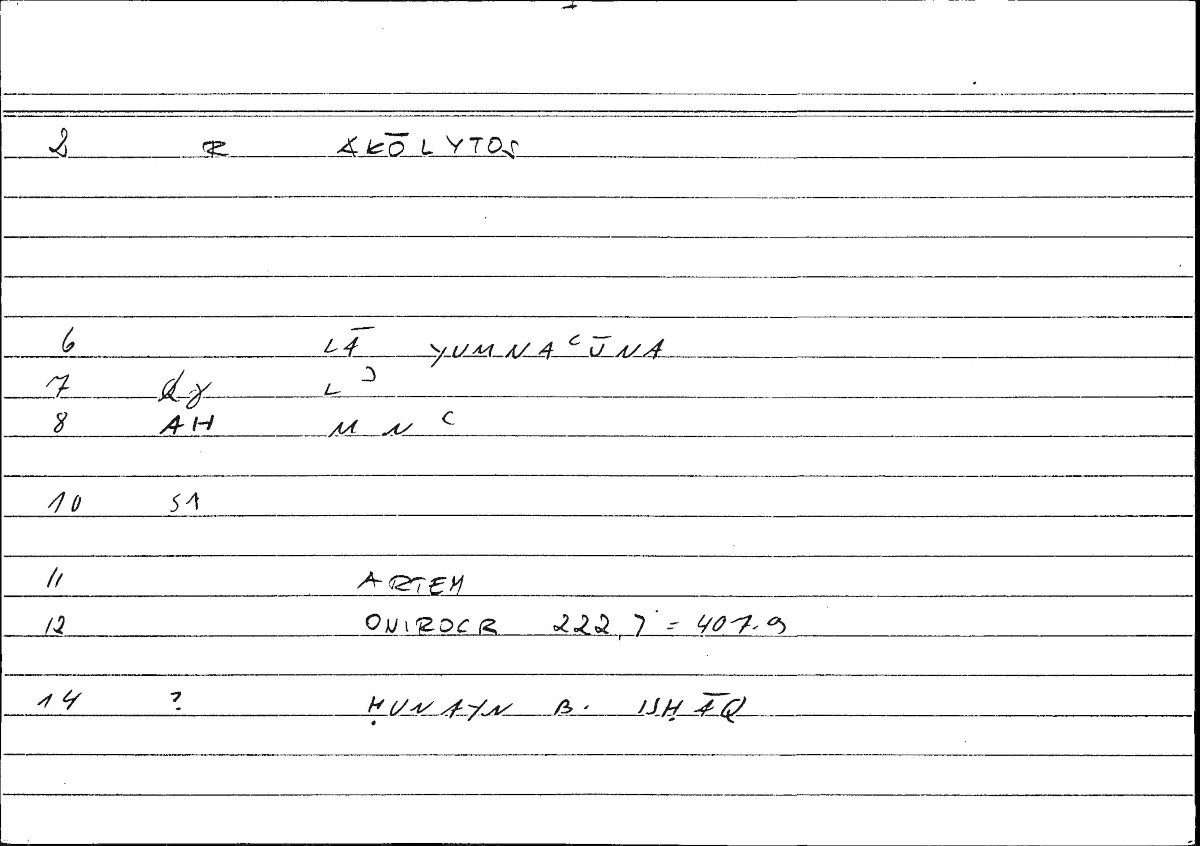 2 R AKŌLYTOS
6 LĀ YUMNAʿŪNA
7 L ʾ
8 AH M N ʿ
10 51
11 ARTEM
12 ONIROCR 222,7 = 407.9
14 ? ḤUNAYN B. ISḤĀQ